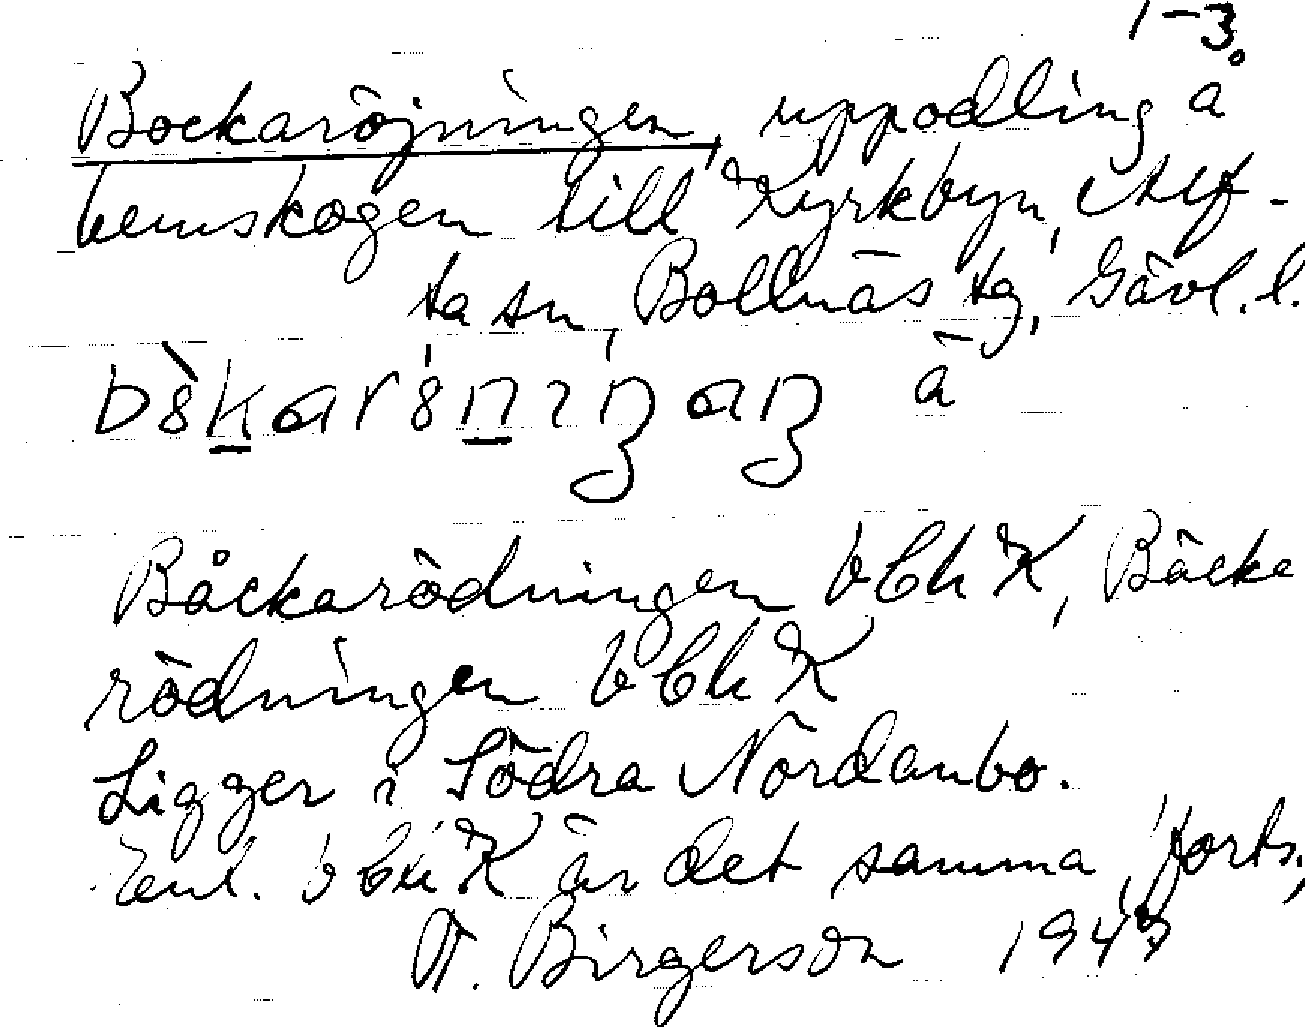 1-3.
Bockaröjningen, uppodling å
hemskogen till Kyrkbyn, Alf-
ta sn, Bollnäs tg, Gävl. l.
å
Båckarödningen bChK, Bäcke
rödningen bChK
Ligger i Södra Nordanbo.
Enl. bChK är det samma, forts.,
T. Birgerson 1943